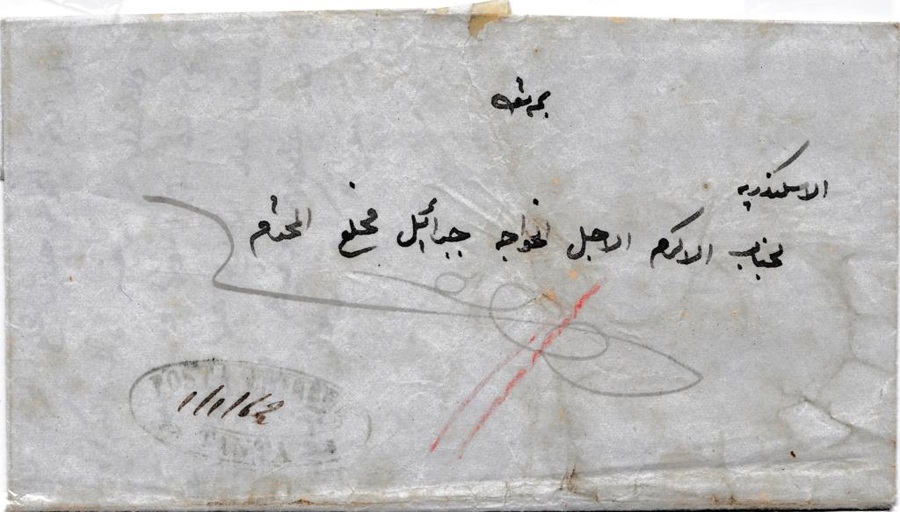 الاسكندريه
لجناب الاكرم الاجل الخواجه جبرائيل مخلع المحترم
POSTA
1/1/62